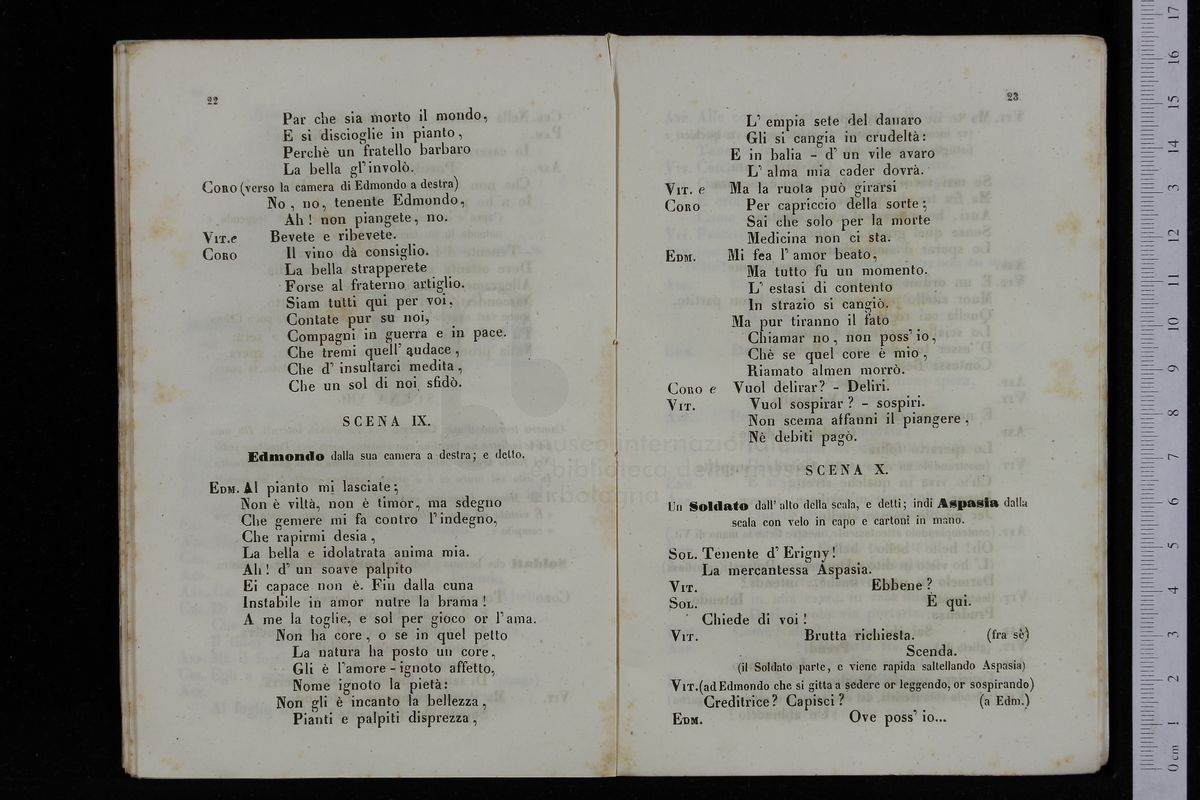 22
Par che sia morto il mondo,
E si discioglie in pianto,
Perchè un fratello barbaro
La bella gl'involò.
CORO (verso la camera di Edmondo a destra)
No, no, tenente Edmondo,
Ah! non piangete, no.
VIT. e Bevete e ribevete.
CORO Il vino dà consiglio.
La bella strapperete
Forse al fraterno artiglio.
Siam tutti qui per voi,
Contate pur su noi,
Compagni in guerra e in pace.
Che tremi quell' audace,
Che d' insultarci medita,
Che un sol di noi sfidò.
SCENA IX.
Edmondo dalla sua camera a destra; e detto.
EDM. Al pianto mi lasciate;
Non è viltà, non è timor, ma sdegno
Che gemere mi fa contro l'indegno,
Che rapirmi desia,
La bella e idolatrata anima mia.
Ah! d' un soave palpito
Ei capace non è. Fin dalla cuna
Instabile in amor nutre la brama!
A me la toglie, e sol per gioco or l'ama.
Non ha core, o se in quel petto
La natura ha posto un core,
Gli è l'amore - ignoto affetto,
Nome ignoto la pietà:
Non gli è incanto la bellezza,
Pianti e palpiti disprezza,
23
L' empia sete del danaro
Gli si cangia in crudeltà:
E in balìa - d' un vile avaro
L' alma mia cader dovrà.
VIT. e Ma la ruota può girarsi
CORO Per capriccio della sorte;
Sai che solo per la morte
Medicina non ci sta.
EDM. Mi fea l' amor beato,
Ma tutto fu un momento.
L' estasi di contento
In strazio si cangiò.
Ma pur tiranno il fato
Chiamar no, non poss' io,
Chè se quel core è mio,
Riamato almen morrò.
CORO e Vuol delirar? - Deliri.
VIT. Vuol sospirar? - sospiri.
Non scema affanni il piangere,
Nè debiti pagò.
SCENA X.
Un Soldato dall' alto della scala, e detti; indi Aspasia dalla
scala con velo in capo e cartoni in mano.
SOL. Tenente d' Erigny!
La mercantessa Aspasia.
VIT. Ebbene?
SOL. È qui.
Chiede di voi!
VIT. Brutta richiesta. (fra sè)
Scenda.
(il Soldato parte, e viene rapida saltellando Aspasia)
VIT. (ad Edmondo che si gitta a sedere or leggendo, or sospirando)
Creditrice? Capisci? (a Edm.)
EDM. Ove poss' io...
museo internazionale
e biblioteca della musica
di bologna
0 cm 1 2 3 4 5 6 7 8 9 10 11 12 13 14 15 16 17